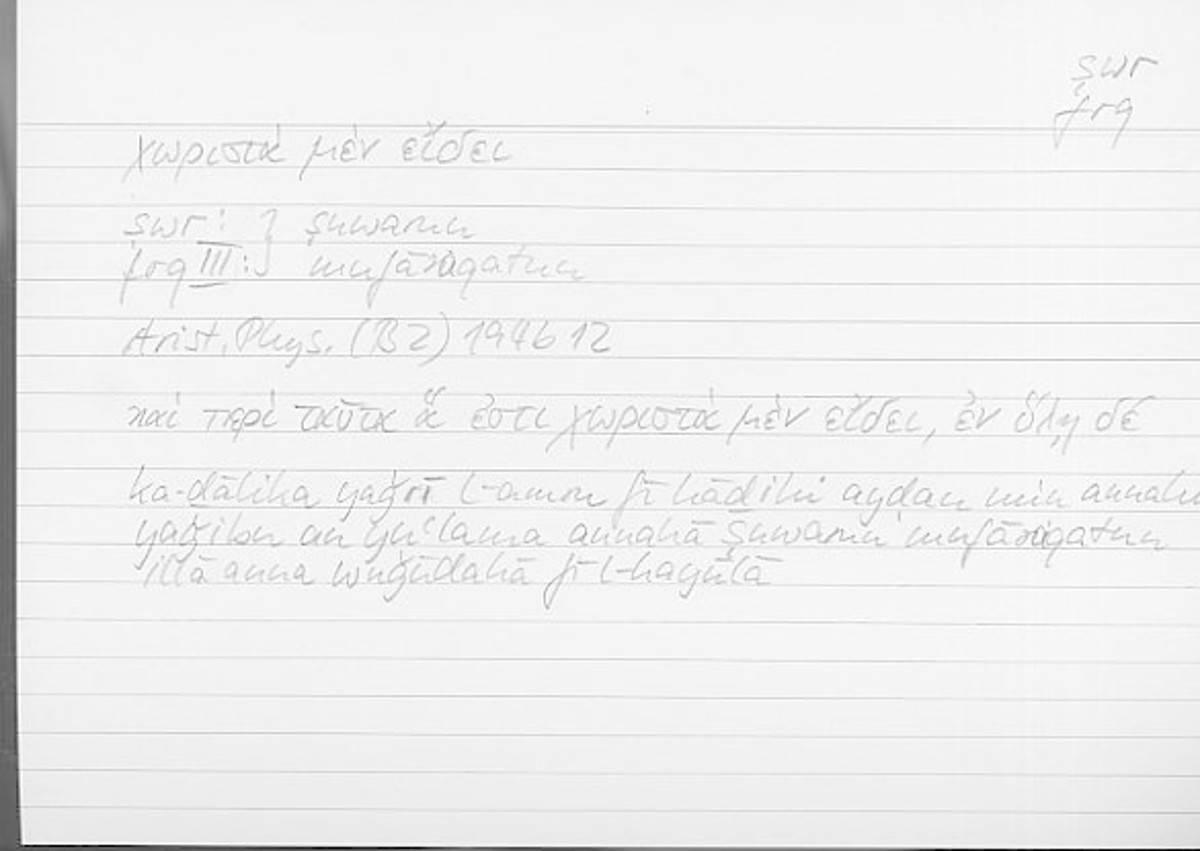 ṣwr
frq
χωριστὰ μὲν εἴδει
ṣwr: } ṣuwarun
frq III: } mufāriqatun
Arist. Phys. (B 2) 194b 12
καὶ περὶ ταῦτα ἅ ἐστι χωριστὰ μὲν εἴδει, ἐν ὕλῃ δέ
ka-ḏālika yaǧrī l-amru fī hāḏihi ayḍan min annahu
yaǧibu an yuʿlama annahā ṣuwarun mufāriqatun
illā anna wuǧūdahā fī l-hayūlā